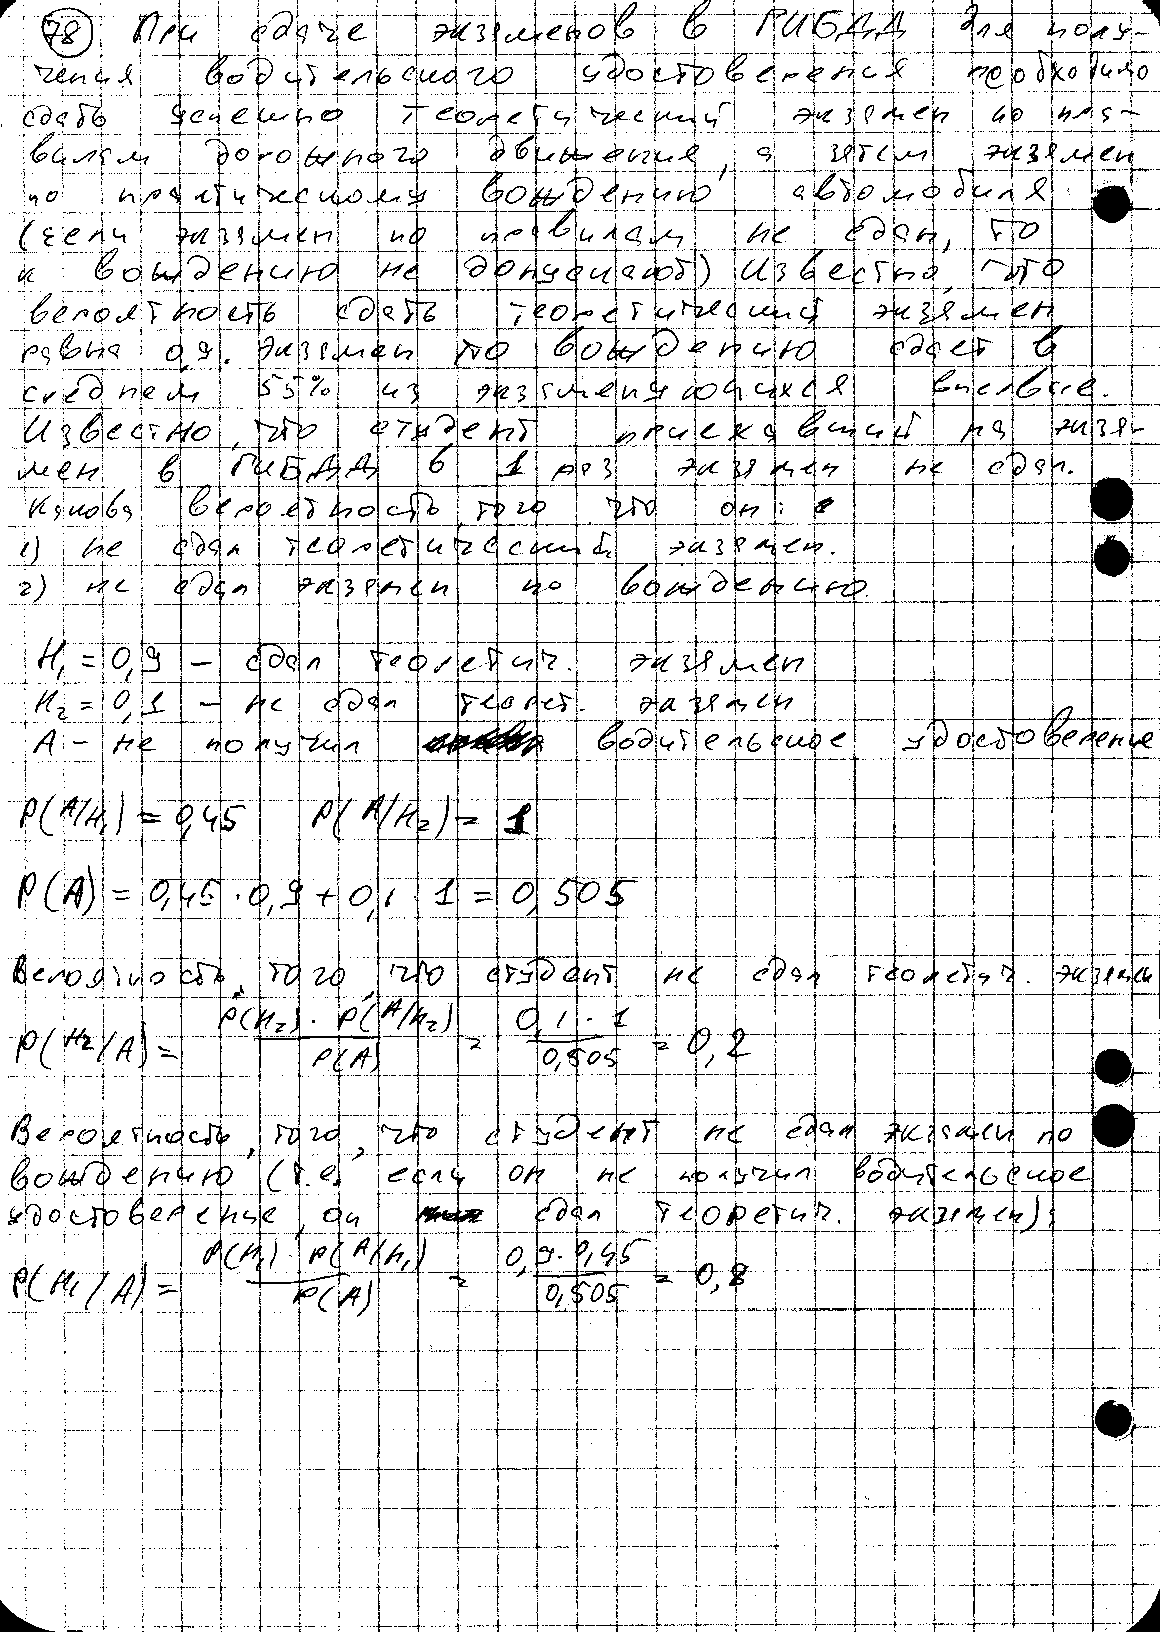 78 При сдаче экзаменов в ГИБДД для полу-
чения водительского удостоверения необходимо
сдать успешно теоретический экзамен по пра-
вилам дорожного движения, а затем экзамен
по практическому вождению автомобиля
(если экзамен по правилам не сдан, то
к вождению не допускают) Известно, что
вероятность сдать теоретический экзамен
равна 0,9. экзамен по вождению сдает в
среднем 55% из экзаменующихся впервые.
Известно, что студент приехавший на экза-
мен в ГИБДД в 1 раз экзамен не сдал.
Какова вероятность того что он:
1) не сдал теоретический экзамен.
2) не сдал экзамен по вождению
H₁ = 0,9 – сдал теоретич. экзамен
H₂ = 0,1 – не сдал теорет. экзамен
A – не получил водительское удостоверение
P(A/H₁) = 0,45 P(A/H₂) = 1
P(A) = 0,45 · 0,9 + 0,1 · 1 = 0,505
Вероятность, того, что студент не сдал теоретич. экзамен
P(H₂/A) = P(H₂) · P(A/H₂) / P(A) = 0,1 · 1 / 0,505 = 0,2
Вероятность, того, что студент не сдал экзамен по
вождению (т.е. если он не получил водительское
удостоверение, он сдал теоретич. экзамен):
P(H₁/A) = P(H₁) · P(A/H₁) / P(A) = 0,9 · 0,45 / 0,505 = 0,8